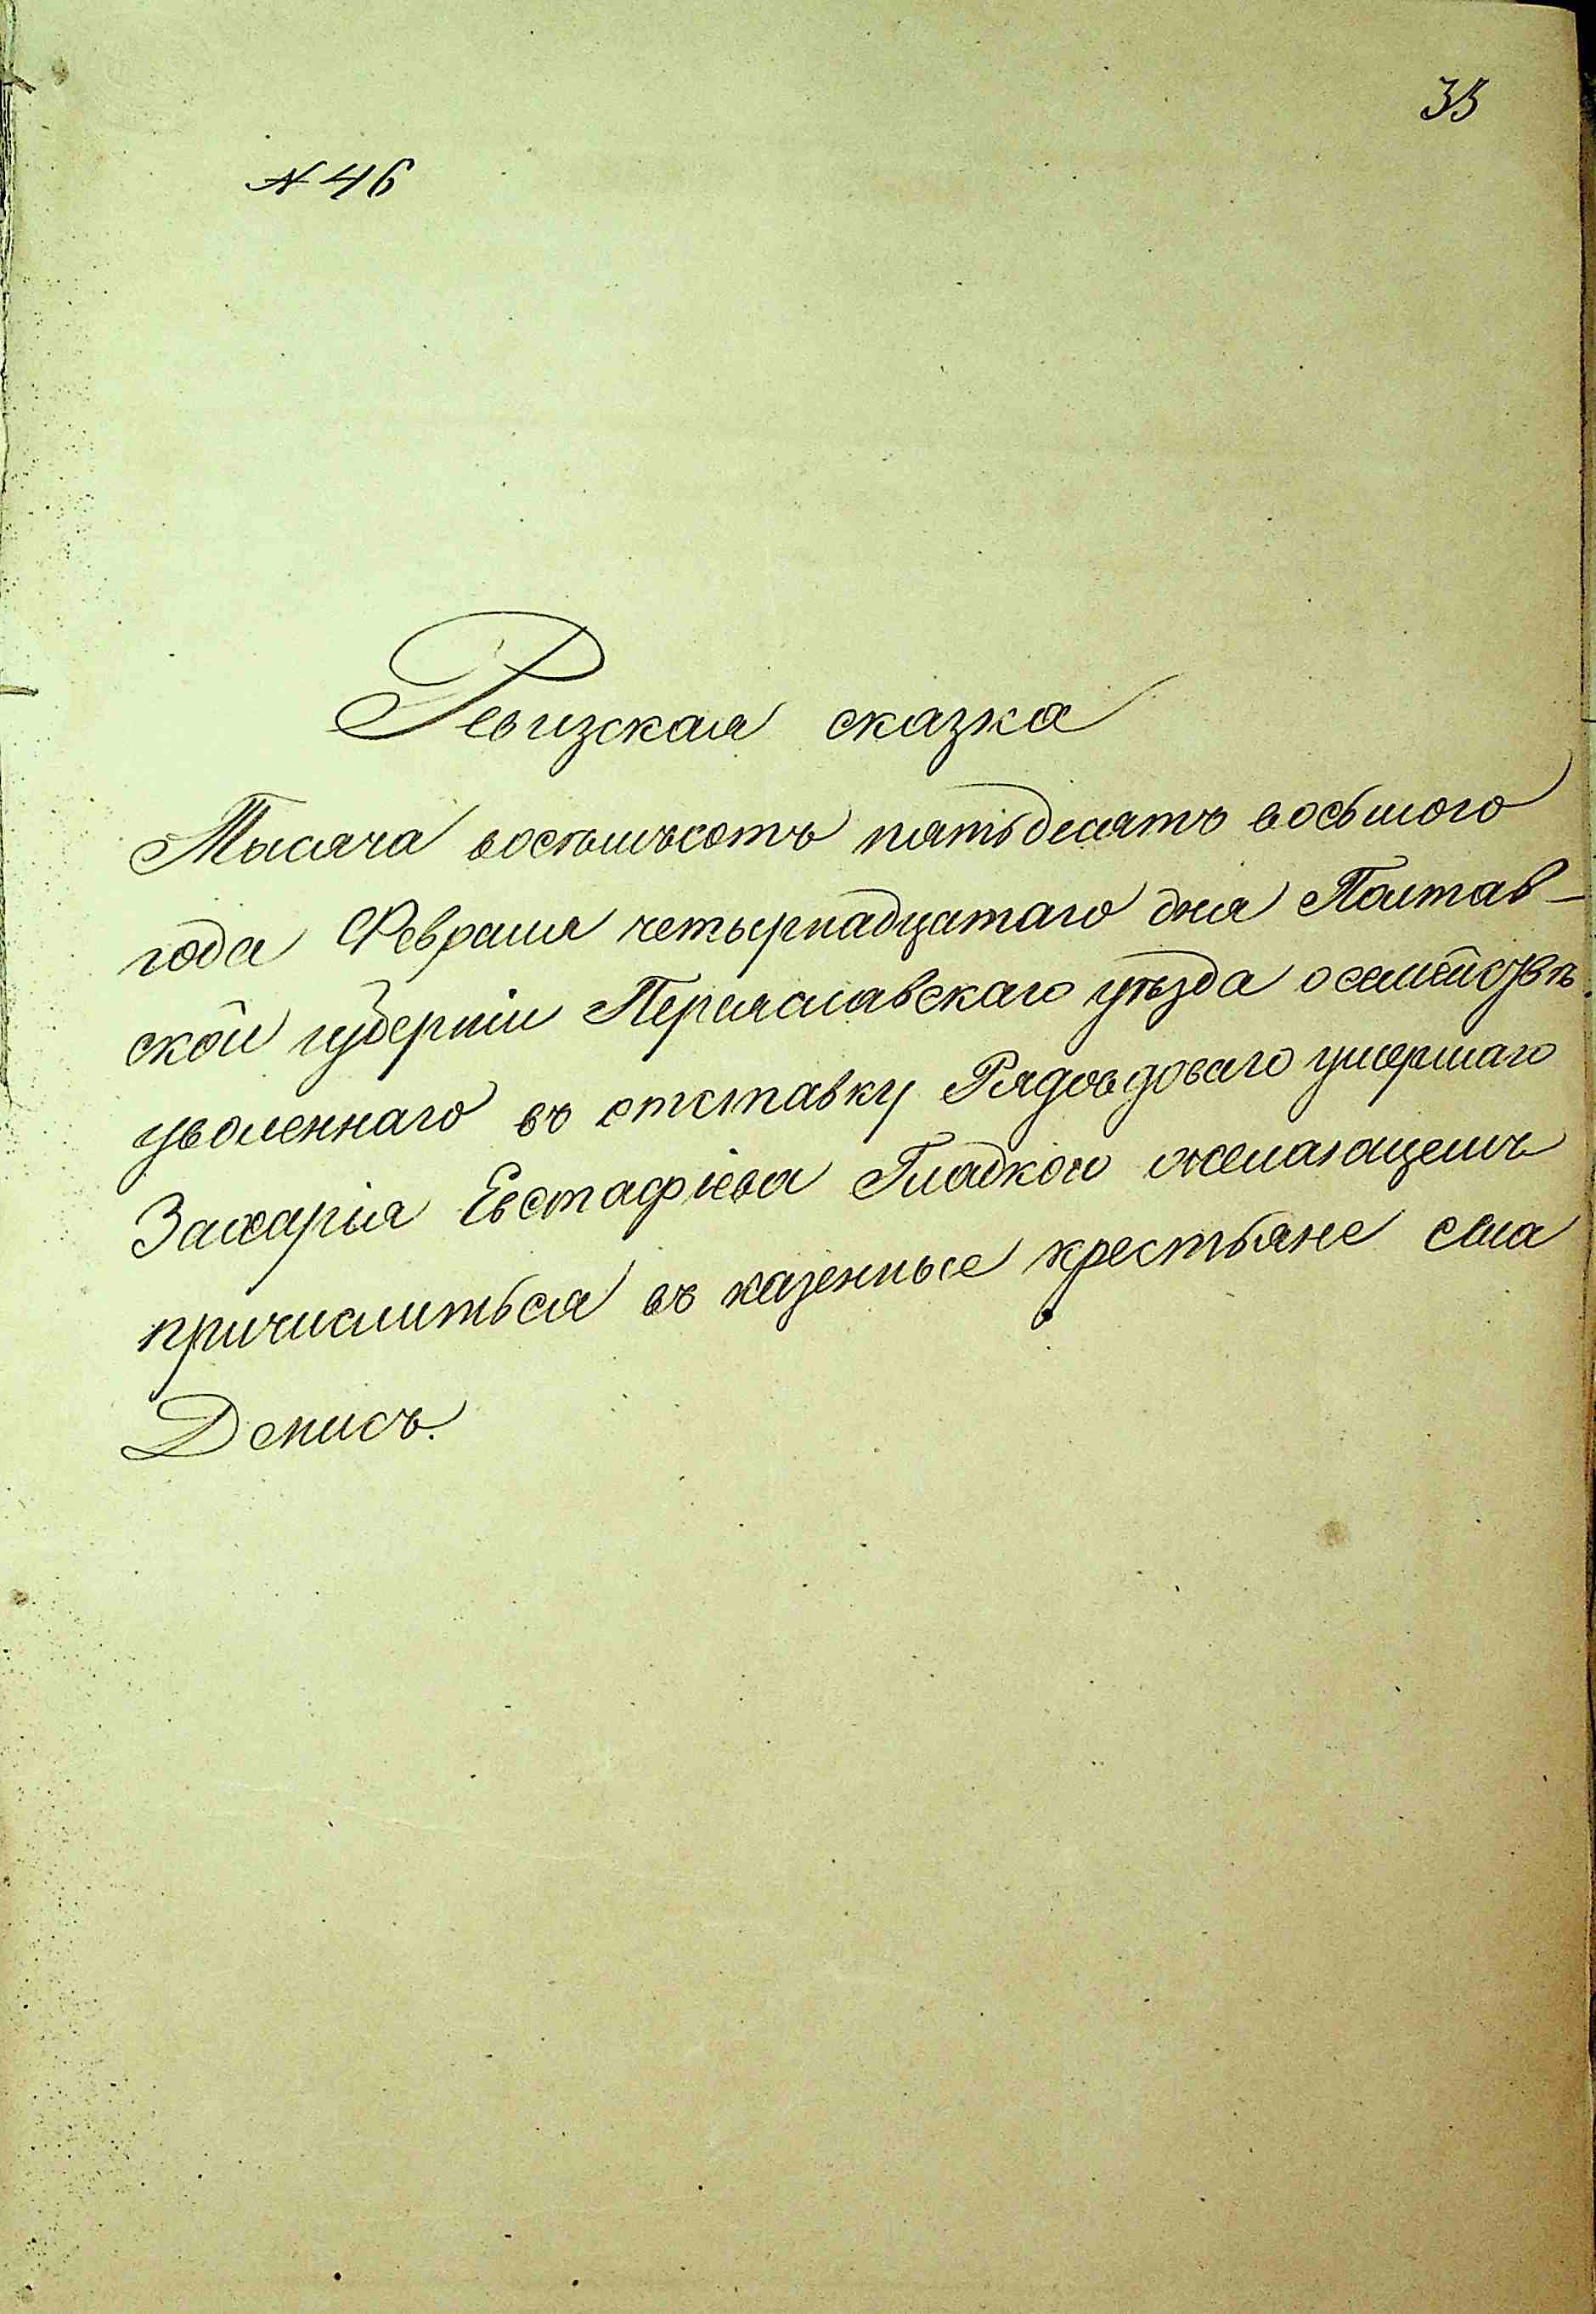 33
№ 46
Ревизская сказка
Тысяча восемьсотъ пятьдесятъ восьмого
года Февраля четырнадцатаго дня Полтав-
ской губерніи Переяславскаго уѣзда о семействѣ
уволеннаго въ отставку Рядовдоваго умершаго
Захарія Евстафіева Гладкой желающемъ
причислиться въ казенные крестьяне села
Денисъ.